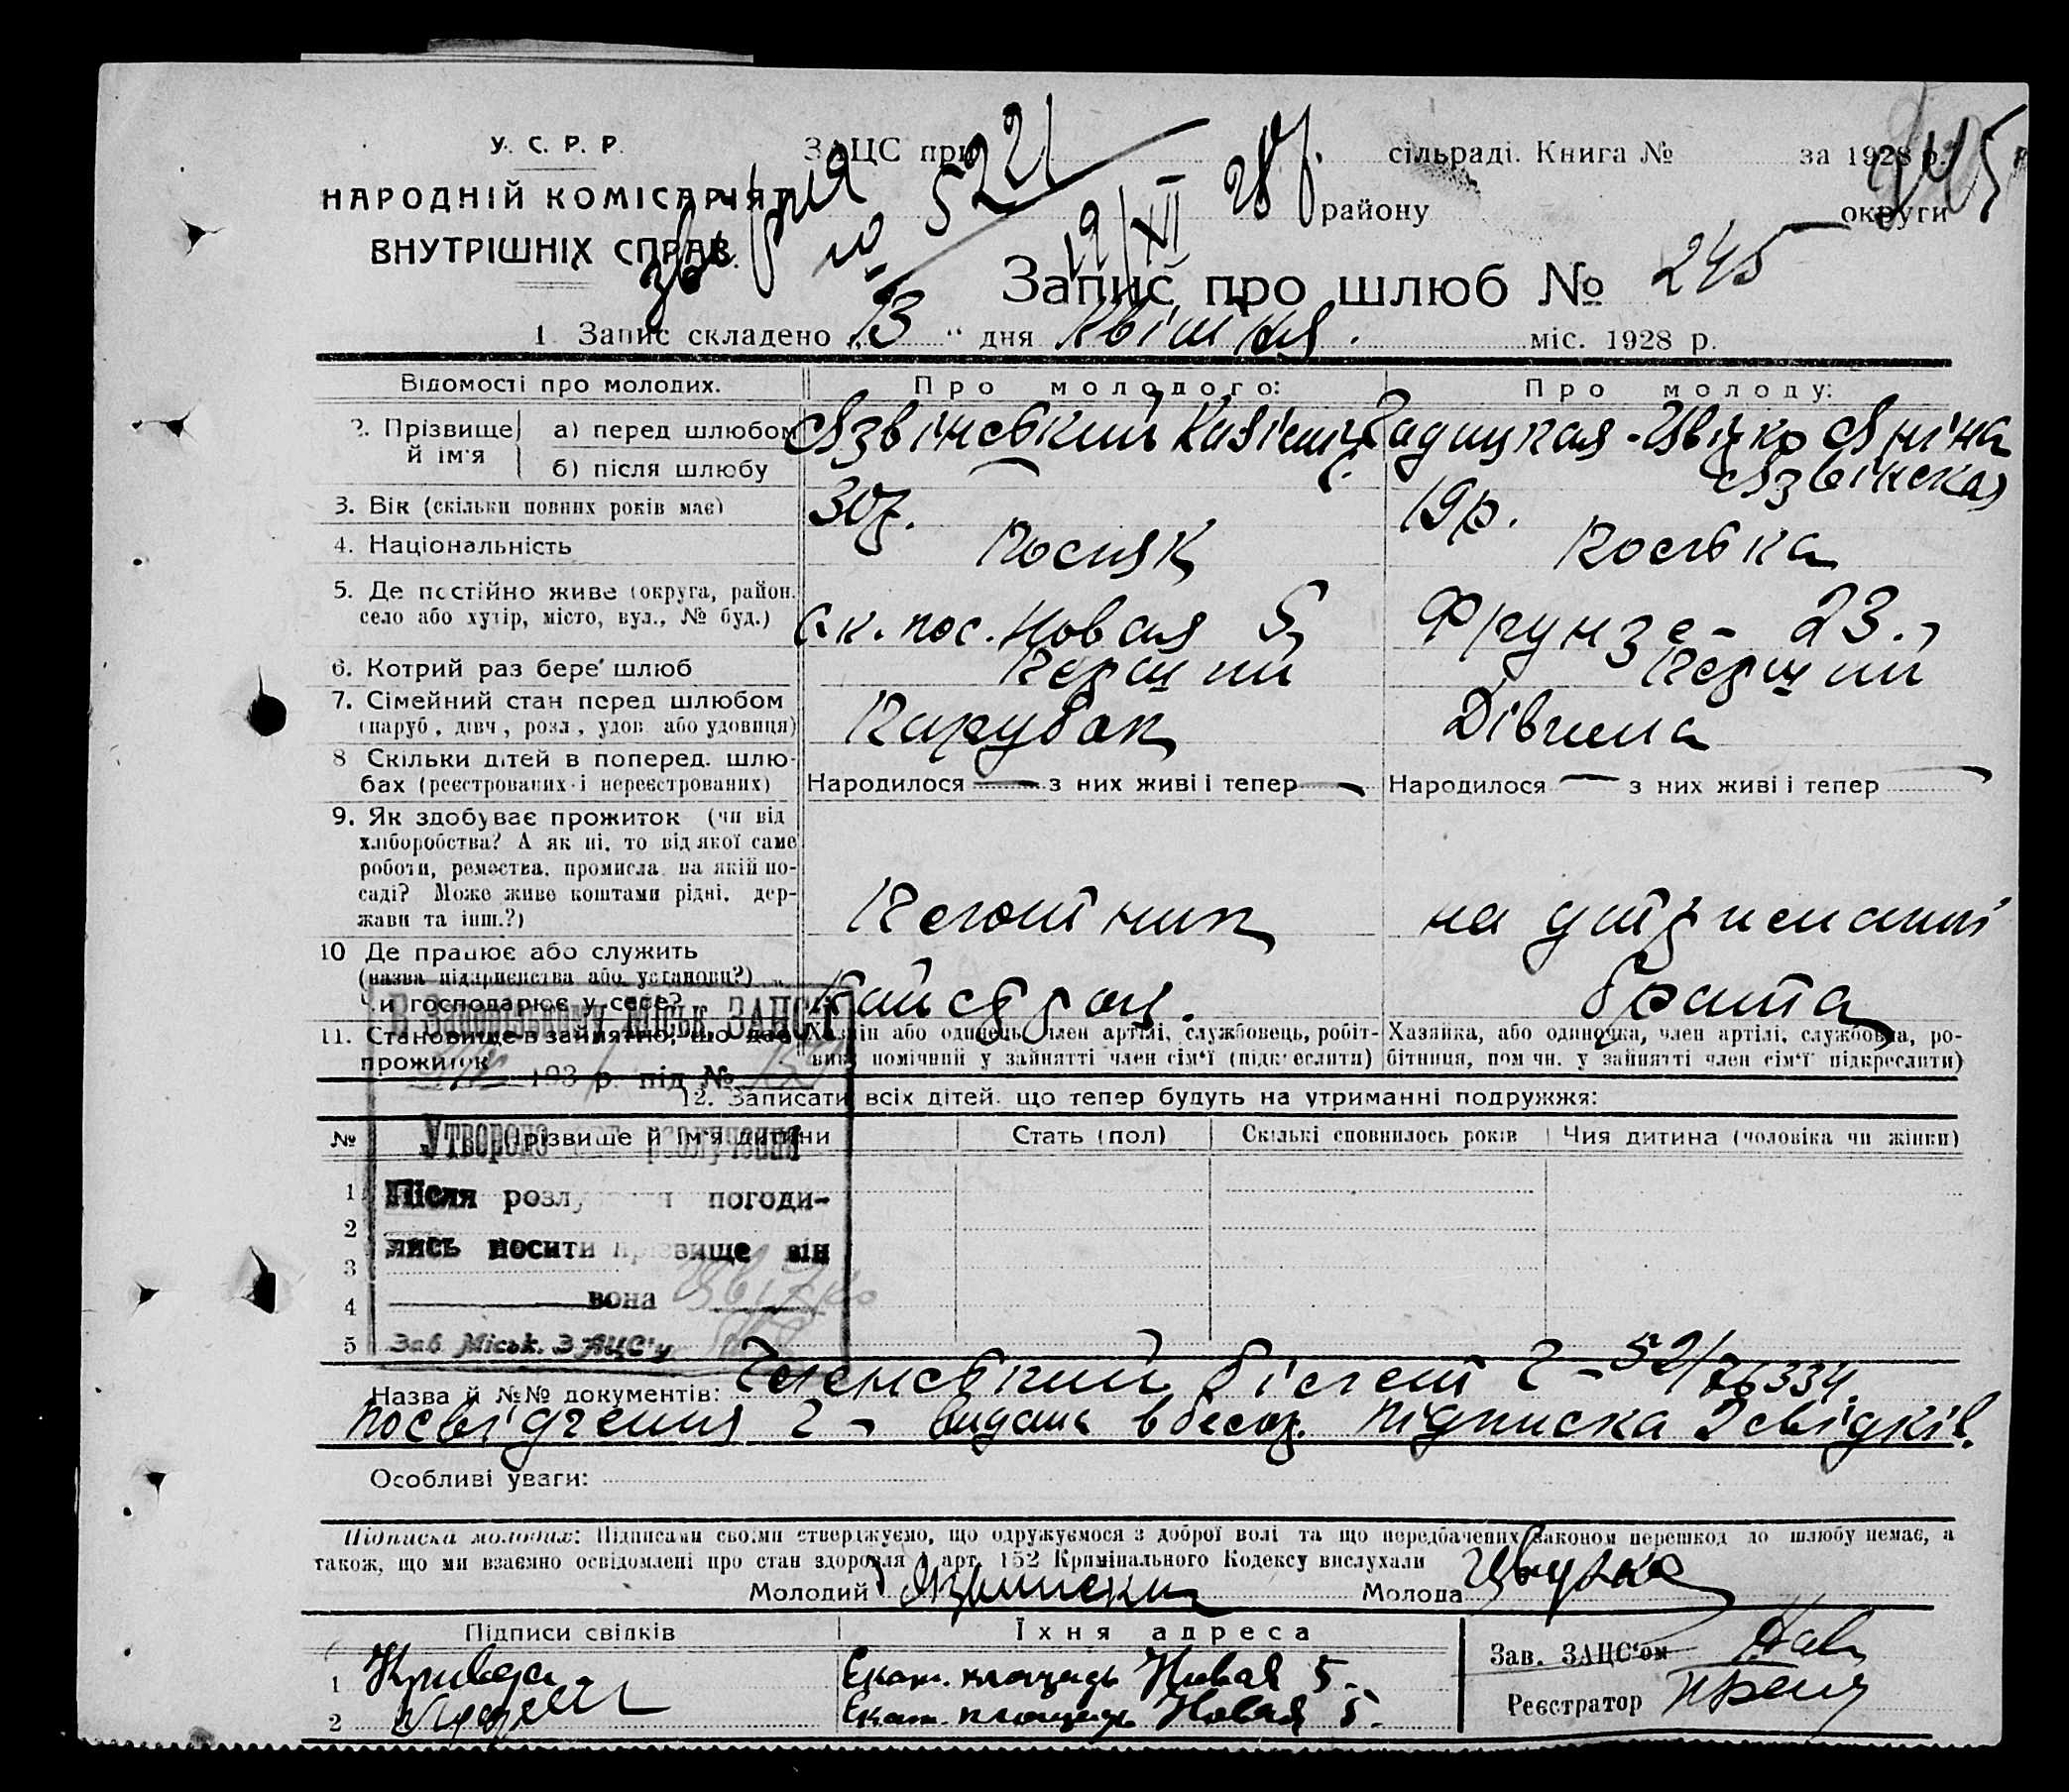 У. С. Р. Р.
НАРОДНІЙ КОМІСАРІЯТ
ВНУТРІШНІХ СПРАВ.
ЗАЦС при сільраді. Книга № за 1928 р.
245
району округи
5221
19/XII 28 р.
Запис про шлюб № 245
1. Запис складено „13“ дня Квітня міс. 1928 р.
Відомості про молодих. Про молодого: Про молоду:
2. Прізвище й ім'я а) перед шлюбом Язвінський Казімір Садицкая-Цвірко Яніна
б) після шлюбу Язвінская
3. Вік (скільки повних років має) 30 р. 19 р.
4. Національність
5. Де постійно живе (округа, район, село або хутір, місто, вул., № буд.) пос. Новая 5, Фрунзе - 23.
6. Котрий раз бере шлюб Перший Перший
7. Сімейний стан перед шлюбом Парубок Дівчина
(паруб., дівч., розл., удов. або удовиця)
8 Скільки дітей в поперед. шлюбах (реєстрованих і нереєстрованих) Народилося — з них живі і тепер — Народилося — з них живі і тепер —
9. Як здобуває прожиток (чи від
хліборобства? А як ні, то від якої саме
роботи, ремества, промисла, на якій по-
саді? Може живе коштами рідні, дер-
жави та інш.?) на утриманні
10 Де працює або служить
(назва підприємства або установи?)
Чи господарює у себе? брата
11. Становище в занятті, що дає прожиток
Хазяїн або одинець, член артілі, службовець, робіт-
ник, помічний у зайнятті член сім'ї (підкреслити)
Хазяйка, або одиночка, член артілі, службовка, ро-
бітниця, пом чн. у зайнятті член сім'ї підкреслити)
12. Записати всіх дітей, що тепер будуть на утриманні подружжя:
№ Прізвище й ім'я дитини Стать (пол) Скількі сповнилось років Чия дитина (чоловіка чи жінки)
1
2
3
4
5
МІСЬК. ЗАЦСІ
193 р. під №
Утворено розлучення
Після розлучення погоди-
лись носити прізвище він
вона Цвірко
Зав Міськ. ЗАЦС'у
Назва й №№ документів: Членський білет Ч - 52/76334.
Посвідчення Ч - видана підписка 2 свідків.
Особливі уваги:
Підписка молодих: Підписами своїми стверджуємо, що одружуємося з доброї волі та що передбачених законом перешкод до шлюбу немає, а
також, що ми взаємно освідомлені про стан здоровля і арт. 152 Кримінального Кодексу вислухали
Молодий Молода
Підписи свідків Їхня адреса
1 Екат. площадь Новая 5.
2 Екат. площадь Новая 5.
Зав. ЗАЦС'ом
Реєстратор